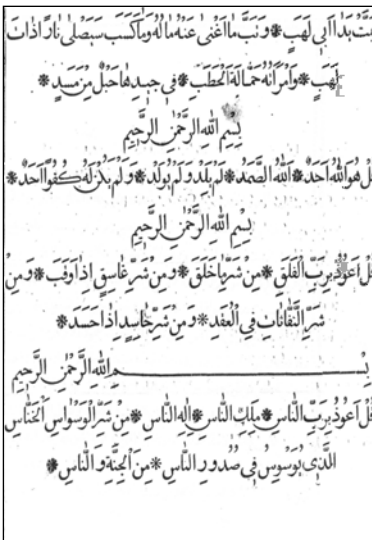 تَبَّتْ يَدَا اَبِى لَهَبٍ * وَتَبَّ مَا اَغْنٰى عَنْهُ مَالُهُ وَمَا كَسَبَ سَيَصْلٰى نَارًا ذَاتَ
لَهَبٍ * وَامْرَاَتُهُ حَمَّالَةَ الْحَطَبِ * فِى جِيدِهَا حَبْلٌ مِنْ مَسَدٍ *
بِسْمِ اللهِ الرَّحْمٰنِ الرَّحِيمِ
قُلْ هُوَ اللهُ اَحَدٌ * اَللهُ الصَّمَدُ * لَمْ يَلِدْ وَلَمْ يُولَدْ * وَلَمْ يَكُنْ لَهُ كُفُوًا اَحَدٌ *
بِسْمِ اللهِ الرَّحْمٰنِ الرَّحِيمِ
قُلْ اَعُوذُ بِرَبِّ الْفَلَقِ * مِنْ شَرِّ مَا خَلَقَ * وَمِنْ شَرِّ غَاسِقٍ اِذَا وَقَبَ * وَمِنْ
شَرِّ النَّفَّاثَاتِ فِى الْعُقَدِ * وَمِنْ شَرِّ حَاسِدٍ اِذَا حَسَدَ *
بِسْمِ اللهِ الرَّحْمٰنِ الرَّحِيمِ
قُلْ اَعُوذُ بِرَبِّ النَّاسِ * مَلِكِ النَّاسِ * اِلٰهِ النَّاسِ * مِنْ شَرِّ الْوَسْوَاسِ الْخَنَّاسِ
الَّذِى يُوَسْوِسُ فِى صُدُورِ النَّاسِ * مِنَ الْجِنَّةِ وَ النَّاسِ *